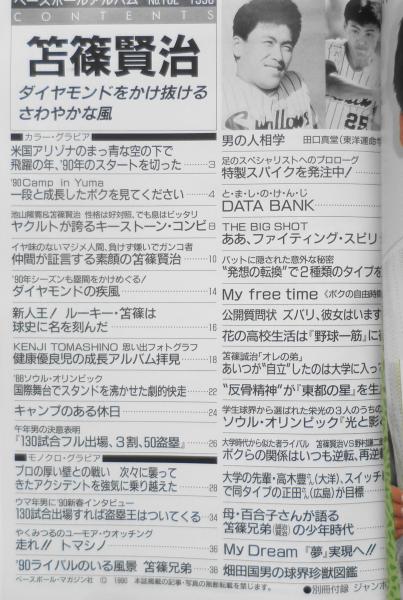 ベースボールアルバム No.102 1990
CONTENTS
笘篠賢治
ダイヤモンドをかけ抜ける
さわやかな風
カラー・グラビア
米国アリゾナのまっ青な空の下で
飛躍の年、'90年のスタートを切った 3
'90 Camp in Yuma
一段と成長したボクを見てください 4
池山隆寛&笘篠賢治 性格は好対照、でも息はピッタリ
ヤクルトが誇るキーストーン・コンビ 8
イヤ味のないマジメ人間、負けず嫌いでガンコ者
仲間が証言する素顔の笘篠賢治 10
'90年シーズンも塁間をかけめぐる!
ダイヤモンドの疾風 14
新人王! ルーキー・笘篠は
球史に名を刻んだ 16
KENJI TOMASHINO 思い出フォトグラフ
健康優良児の成長アルバム拝見 18
'88ソウル・オリンピック
国際舞台でスタンドを沸かせた劇的快走 22
キャンプのある休日 24
午年男の決意表明
『130試合フル出場、3割、50盗塁』 26
モノクロ・グラビア
プロの厚い壁との戦い 次々に襲って
きたアクシデントを強気に乗り越えた 28
ウマ年男に'90新春インタビュー
130試合出場すれば盗塁王はついてくる 34
やくみつるのユーモア・ウオッチング
走れ!! トマシノ 36
'90ライバルのいる風景 笘篠兄弟 38
ベースボール・マガジン社 © 1990 本誌掲載の記事・写真の無断転載を禁じます。
Swallows
25
男の人相学 田口真堂(東洋運命学
足のスペシャリストへのプロローグ
特製スパイクを発注!
と・ま・し・の・け・ん・じ
DATA BANK
THE BIG SHOT
ああ、ファイティング・スピリ
バットに隠された意外な秘密
"発想の転換"で2種類のタイプを
My free time 《ボクの自由時間
公開質問状 ズバリ、彼女はいます
花の高校生活は『野球一筋』に
笘篠誠治「オレの弟」
あいつが"自立"したのは大学に入っ
"反骨精神"が『東都の星』を生
学生球界から選ばれた栄光の3人のうちの
ソウル・オリンピック『光と影
大学時代から似た者ライバル 笘篠賢治VS野村謙二郎
ボクらの関係はいつも逆転、再逆転
大学の先輩・高木豊(大洋)、スイッチ
で同タイプの正田(広島)が目標
母・百合子さんが語る
笘篠兄弟(誠治 賢治)の少年時代
My Dream 『夢』実現へ!!
畑田国男の球界珍獣図鑑
●別冊付録 ジャンボ